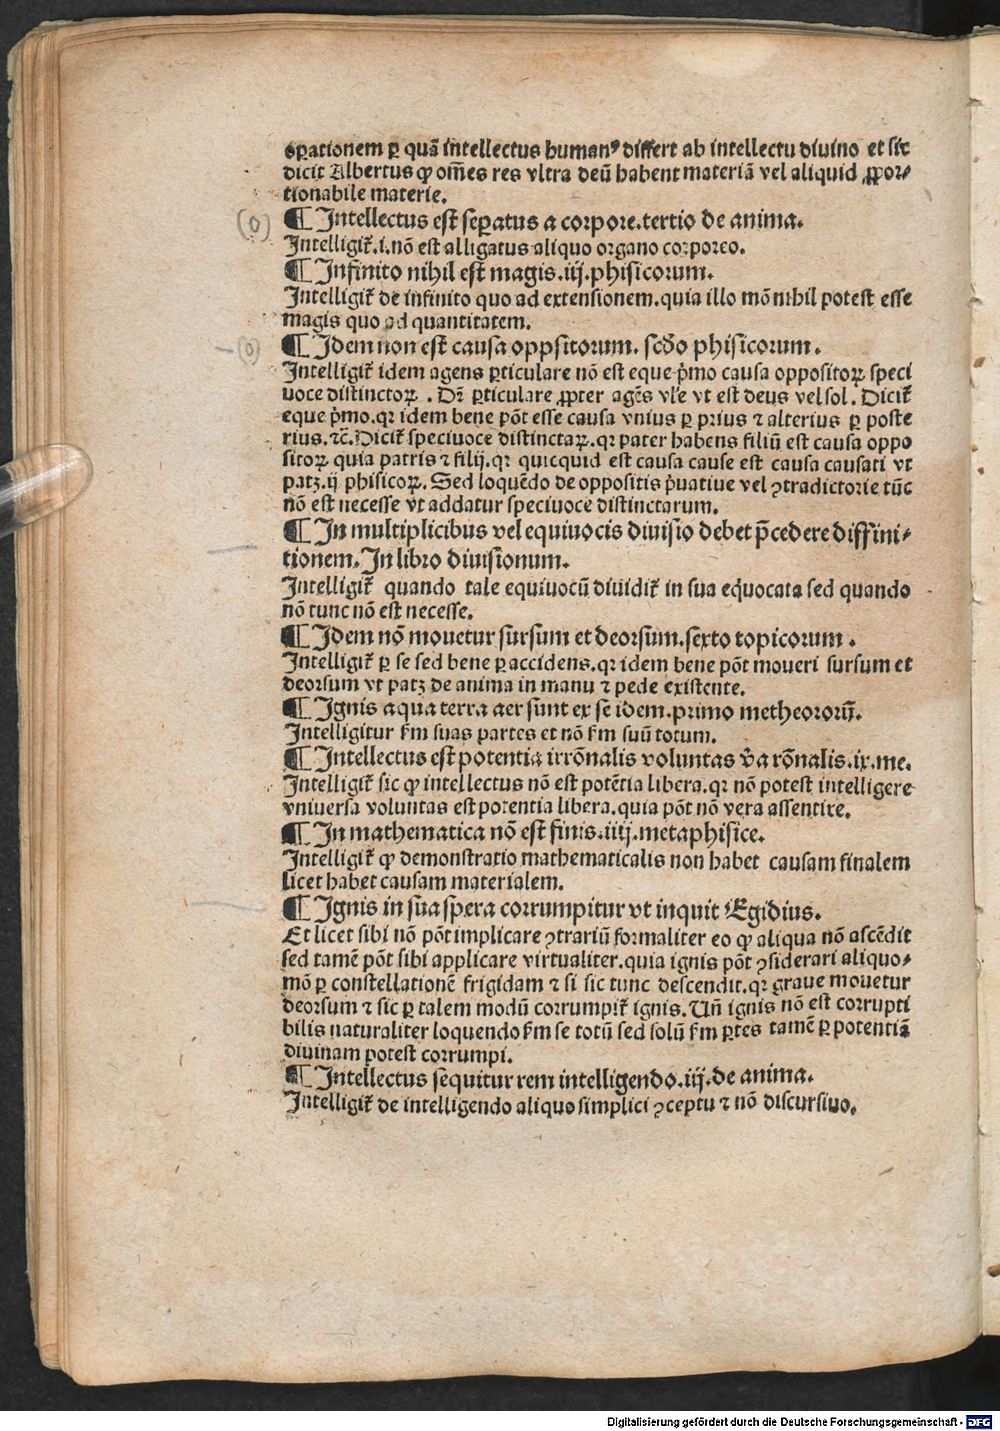 oꝑationem ꝑ quã intellectus humanꝰ differt ab intellectu diuino et sic
dicit Albertus ꝙ om̃es res vltra deũ habent materiã vel aliquid ꝓpor⸗
tionabile materie.
(o)
¶ Intellectus est seꝑatus a corpore.tertio de anima.
Intelligit᷑.i.nõ est alligatus aliquo organo corporeo.
¶ Infinito nihil est magis.iij.phisicorum.
Intelligit᷑ de infinito quo ad extensionem.quia illo mõ nihil potest esse
magis quo ad quantitatem.
(o)
¶ Idem non est causa oppsitorum. scd̃o phisicorum.
Intelligit᷑ idem agens ꝑticulare nõ est eque p̃mo causa oppositoꝝ speci
uoce distinctoꝝ . Dr̃ ꝑticulare ꝓpter agẽs vl'e vt est deus vel sol. Dicit᷑
eque p̃mo.qꝛ idem bene põt esse causa vnius ꝑ prius ⁊ alterius ꝑ poste
rius.⁊c̃.Dicit᷑ speciuoce distinctaꝝ.qꝛ pater habens filiũ est causa oppo
sitoꝝ quia patris ⁊ filij.qꝛ quicquid est causa cause est causa causati vt
patꝫ.ij phisicoꝝ. Sed loquẽdo de oppositis p̃uatiue vel ꝯtradictorie tũc
nõ est necesse vt addatur speciuoce distinctarum.
¶ In multiplicibus vel equiuocis diuisio debet p̃cedere diffini⸗
tionem.In libro diuisionum.
Intelligit᷑ quando tale equiuocũ diuidit᷑ in sua equocata sed quando
nõ tunc nõ est necesse.
¶ Idem nõ mouetur sursum et deorsum.sexto topicorum .
Intelligit᷑ ꝑ se sed bene ꝑ accidens.qꝛ idem bene põt moueri sursum et
deorsum vt patꝫ de anima in manu ⁊ pede existente.
¶ Ignis aqua terra aer sunt ex se idem.primo metheororũ.
Intelligitur ẜm suas partes et nõ ẜm suũ totum.
¶ Intellectus est potentia irrõnalis voluntas v̾a rõnalis.ix.me.
Intelligit᷑ sic ꝙ intellectus nõ est potẽtia libera.qꝛ nõ potest intelligere
vniuersa voluntas est potentia libera.quia põt nõ vera assentire.
¶ In mathematica nõ est finis.iiij.metaphisice.
Intelligit᷑ ꝙ demonstratio mathematicalis non habet causam finalem
licet habet causam materialem.
¶ Ignis in sua spera corrumpitur vt inquit Egidius.
Et licet sibi nõ põt implicare ꝯtrariũ formaliter eo ꝙ aliqua nõ ascẽdit
sed tamẽ põt sibi applicare virtualiter.quia ignis põt ꝯsiderari aliquo⸗
mõ ꝑ constellationẽ frigidam ⁊ si sic tunc descendit.qꝛ graue mouetur
deorsum ⁊ sic ꝑ talem modũ corrumpit᷑ ignis. Uñ ignis nõ est corrupti
bilis naturaliter loquendo ẜm se totũ sed solũ ẜm ꝑtes tamẽ ꝑ potentiã
diuinam potest corrumpi.
¶ Intellectus sequitur rem intelligendo.iij.de anima.
Intelligit᷑ de intelligendo aliquo simplici ꝯceptu ⁊ nõ discursiuo.
Digitalisierung gefördert durch die Deutsche Forschungsgemeinschaft - DFG